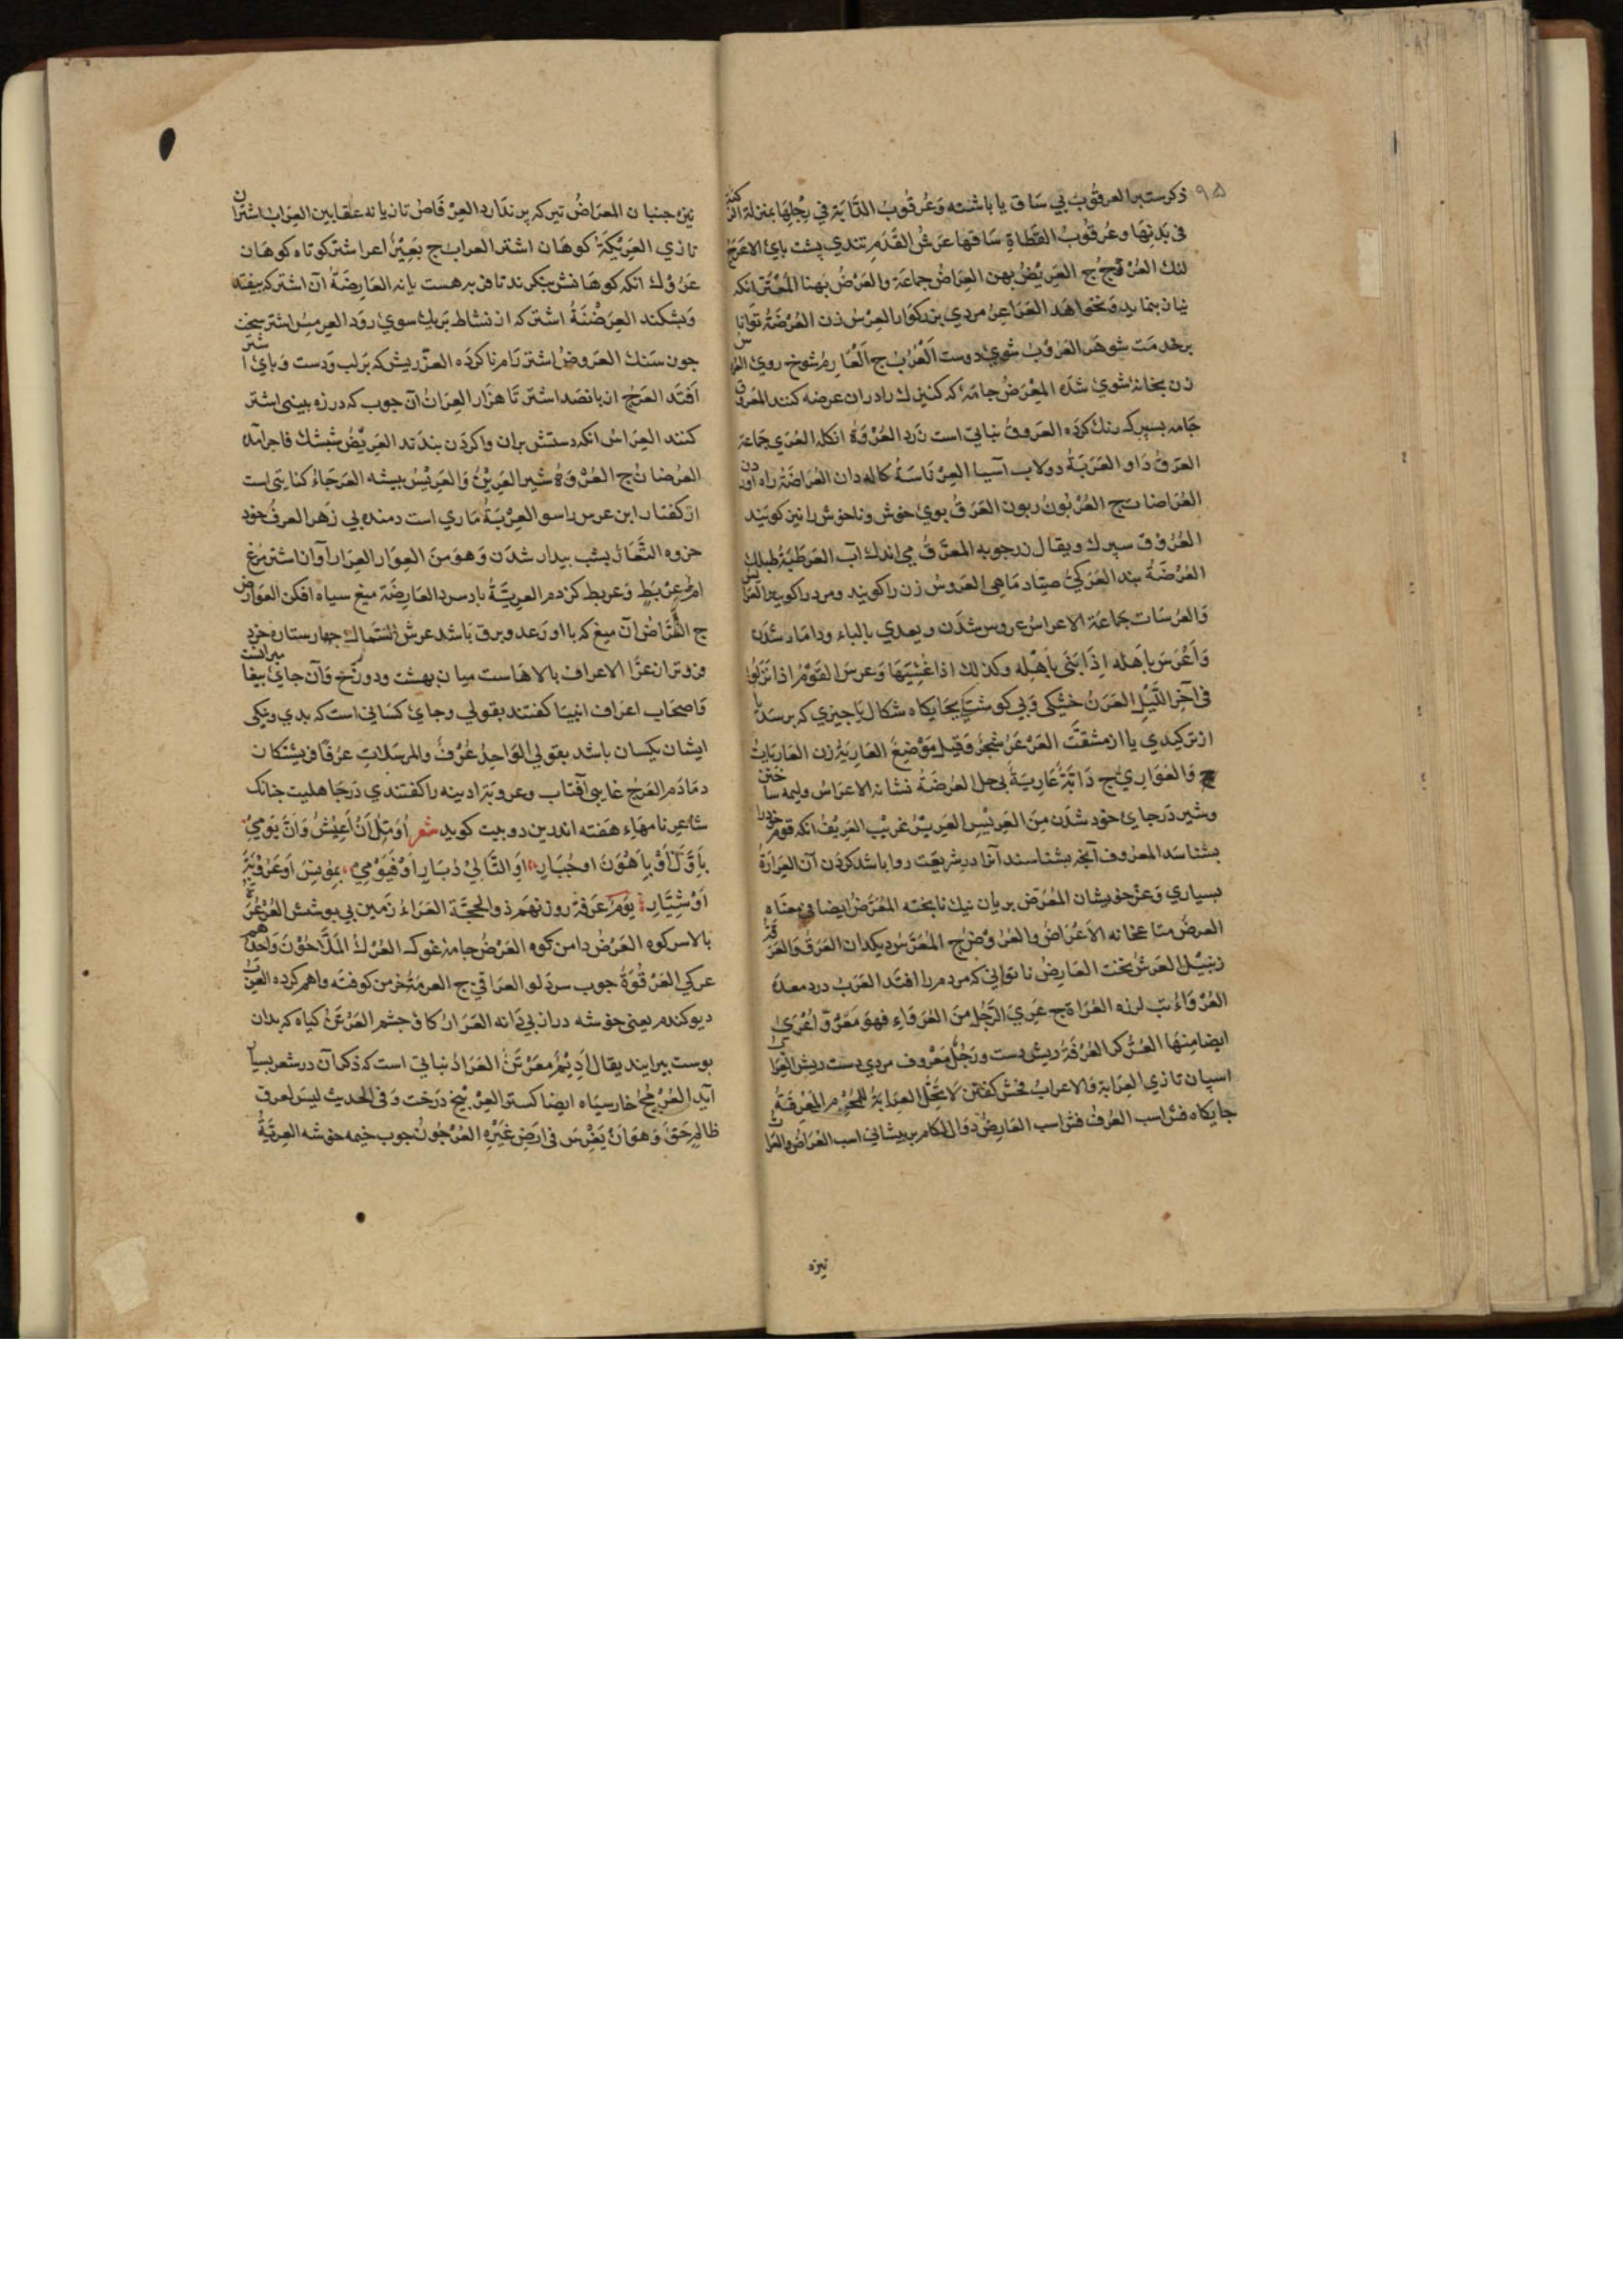 ٩٥
ذکر ستبر العرقوب بی ساق یا باشنه وَعُرقُوبُ الدَّابَةِ فِي رِجْلِهَا بمنزلة الرکبة
فی یَدِهَا وعرقوبُ القَطَاةِ سَاقها عَرْشُ القَدَمِ تندی پشت بایْ الاعرَجُ
لنك العُرْجُ ج العَرِیْضُ بهن العِرَاضُ جماعَة والعَرْضُ بهنا المُعْتَرُّ انکه
بنماید ونخواهَد العَرَاعِرُ مردی بزرکوار العِرْسُ زن العُرْضَةُ توانا
برخدمَت شوهَر العَرُوْبُ شوی دوست العُرُبُ ج العَارِمُ شوخ روی
زن بخانه شوی شدَه المِعْرَضُ جامَه که کنیزك را دران عرضه کنند
جَامه بسپرك رنك کرده العروقُ نباتی است زَرد العُرْوَةُ انکله العُرَی جَماعَة
العَرَقُ دَاو العَرَبَةُ دولاب آسیا العِرْنَاسَةُ کاله دان العُرَاضَةُ راه آورد
العُرَاضات ج العُرْبُونُ ربون العَرَقُ بوی خوش وناخوش را نیز کویند
العُرُوْق سپرك ویقال زرجوبه المعرَّقُ می اندك آب العَرطَبَةُ طبلك
العُرْضَةُ بند العَرَکِیُّ صیّاد مَاهی العَروسُ زن را کویند ومرد را کویند
وَالعرُسَات جَماعَة الاعراسُ عروس شدَن ویعدی بالباء وداماد شدَن
وَاَعْرَسَ بِاَهله اِذَا بَنَی بِاَهْلِهِ وکذلك اذا غَشِیَهَا وَعرسَ القَوْمُ اذا نَزَلُوا
فی آخِرِ اللَّیْلِ العَرَنُ خشکی وَبی کوشتی بجَایکاه شکال یا جیزی که برسَد
از ترکیدی یا از مشقّت العَرْعَرُ شجرٌ وَقیل مَوْضِعٌ العَارِیَةُ زن العَارِیَاتُ
ج وَالعَوَارِی ج دَابّةٌ عَارِیَةٌ بی جل العُرضَةُ نشانه الاعراسُ ولیمه ساختن
وشیر دَرجای خود شدَن مِنَ العَرِیْسِ العَرِیبُ غریب العَرِیْفُ انکه قوم خود را
بشناسَد المعرُوف آنجه بشناسند آنرا در شریعَت روا باشد کردَن آن العَرَارَةُ
بسیاری وَعزّ خویشان المُعَرَّض بریان نیك نابخته المُعَرَّضُ ایضا فی معناه
العرضُ متاع خانه الاَعْرَاضُ والعُرُوْضُ ج المُعَرَّسُ دیکدان العَرَقُ وَالعَرَقَةُ
زنبیل العَرْشُ تخت العَارِضُ ناتوانی که مردم را افتد العَرَبُ درد معدَه
العُرْوَاءُ تب لرزه العُرَاة ج عُرِیَ الرَّجُل مِنَ العُرَوَاءِ فهوَ مَعْرُوٌّ اُعْرِیَ
ایضا مِنهَا العُرُّ کر العُرْفَةُ ریش دست ورَجُلٌ مَعْرُوف مردی دست ریش العِرَابُ
اسپان تازی العِرَابة وَالاعراب فحش کفتن لا تَحِلُّ العِرَابَةُ لِلمُحْرِم المَعْرِفَةُ
جایکاه فش اسب العُرفُ فش اسب العَارِضُ دوال لکام بر پیشانی اسب العُرَاضُ والعَرَّاتُ
نیزه
نیزه جنبان المعرَاضُ تیر که پر ندَارد العِرْفَاصُ تازیانه عقابین العِرَابُ اشتران
تازی العَرِیْکَةُ کوهَان اشتر العراب ج بَعِیْرٌ اعرا اشتر کوتاه کوهان
عَرُوْك انکه کوهَانش بنکرند تا فربه هست یا نه العَارِضَةُ آن اشتر که بیفتد
وَبشکند العِرَضْنَةُ اشتر که از نشاط بَریك سوی رَود العِرْمِسُ اشتر سخت
جون سَنك العَروضُ اشتر رَام ناکردَه العَرُّ ریش که بَر لب وَدست وَبای اشتر
اَفتَد العَرْجُ از بانصَد اشتر تَا هزَار العِرَانُ آن جوب که در زه بینی اشتر
کنند العِرَاسُ انکه دستش بران واکردَن بندَند العَرِیْضُ شیشك فاجرا آمده
العرضَانُ ج العُرْوَةُ شیر العَرِیْنُ وَالعَرِیْسُ بیشه العَرجَاءُ کنایتی است
از کفتار ابن عرس راسو العِرْبَدُّ مَاری است دمنده بی زهر العرفُ خود
خروه التَّعَارُّ بشب بیدار شدَن وَهوَ مِنَ العِوَار العِرَار آوان اشترمُرغ
اُمُّ عِرْیَطٍ وعریط کژدم العریّةُ باد سرد العَارِضَةُ میغ سیاه افکن العَوَارِض
ج العَرَّاضُ آن میغ که با او رَعد وبرق باشد عرش السّماك جهار ستاره خرد
فروتر از عوّا الاعراف بالاهاست میان بهشت ودوزخ وَآن جای بیغا
وَاصحَاب اعراف انبیا کفتند بقولی وجای کسانی است که بدی ونیکی
ایشان یکسان باشد بقولی الوَاحِدُ عُرْفٌ والمرسَلاتِ عرْفًا فریشتکان
دمَادَم العَرْجُ غایبی آفتاب وعروبَة آدینه را کفتندی دَرجَاهلیت جنانك
شَاعِر نامهَاء هَفته اندرین دو بیت کوید شعر اُؤَمِّلُ اَنْ اَعِیْشَ وَاَنَّ یَوْمِی
بِاَوَّلَ اَوْ بِاَهْوَنَ او جُبَارِ اَوِ التَّالِی دُبَارٍ اَوْ فَیَوْمِی بِمُوْنِسَ اَو عَرُوْبَةَ
اَوْ شِیَارِ یَوْمُ عَرَفَة روز نهَم ذوالحجّة العَرَاءُ زَمین بی پوشش العُرْعُرَةُ
بالا سر کوه العَرْضُ دامن کوه العَرْضُ جامه غوك العَرَكُ المَلَّاحُوْنَ وَاحِدُهُمْ
عرکی العَرْقُوَةُ جوب سر دَلو العَرَاقِی ج العرمَةُ خرمن کوفته واهم کرده
دیو کندم یعنی خوشه دراز بی دَانه العَرَانُ کاف جشم العَرَعَرُ کیاه که بدان
بوست بیرایند یقال اَدِیْمٌ مُعَرْتَنٌ العَرَارُ نباتی است که ذکر آن در شعر بسیار
آید العُرْفُجُ خار سیَاه ایضا کستر العِرْقُ بیخ درَخت وَفی الحدیث لیسَ لعرق
ظالمٍ حَقٌّ وَهوَ اَنْ یَغْرِسَ فی ارضِ غَیْرِهِ العُرْجُونُ جوب خیمه خوشه العِرقَةُ